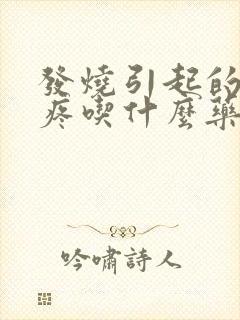 發燒引起的
疼喫什麼藥
吟嘯詩人